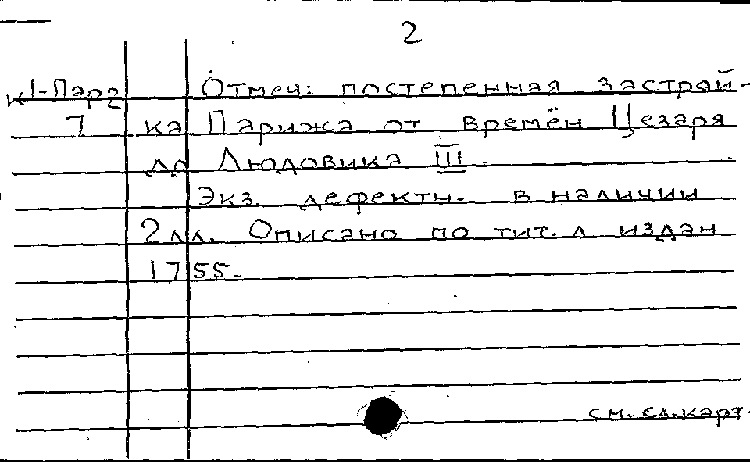 2
К1-Парг Отмеч: постепенная застрой-
7 ка Парижа от времён Цезаря
до Людовика III.
Экз. дефектн. в наличии
2 лл. Описано по тит. л издан
1755.
см. сл. карт.